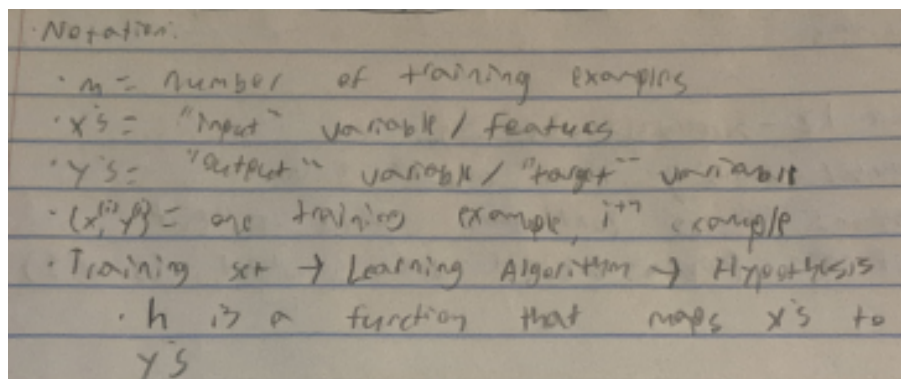 · Notation:
· m = number of training examples
· x's = "input" variable / features
· y's = "output" variable / "target" variable
· (x⁽ⁱ⁾, y⁽ⁱ⁾) = one training example, iᵗʰ example
· Training set → Learning Algorithm → Hypothesis
· h is a function that maps x's to
y's